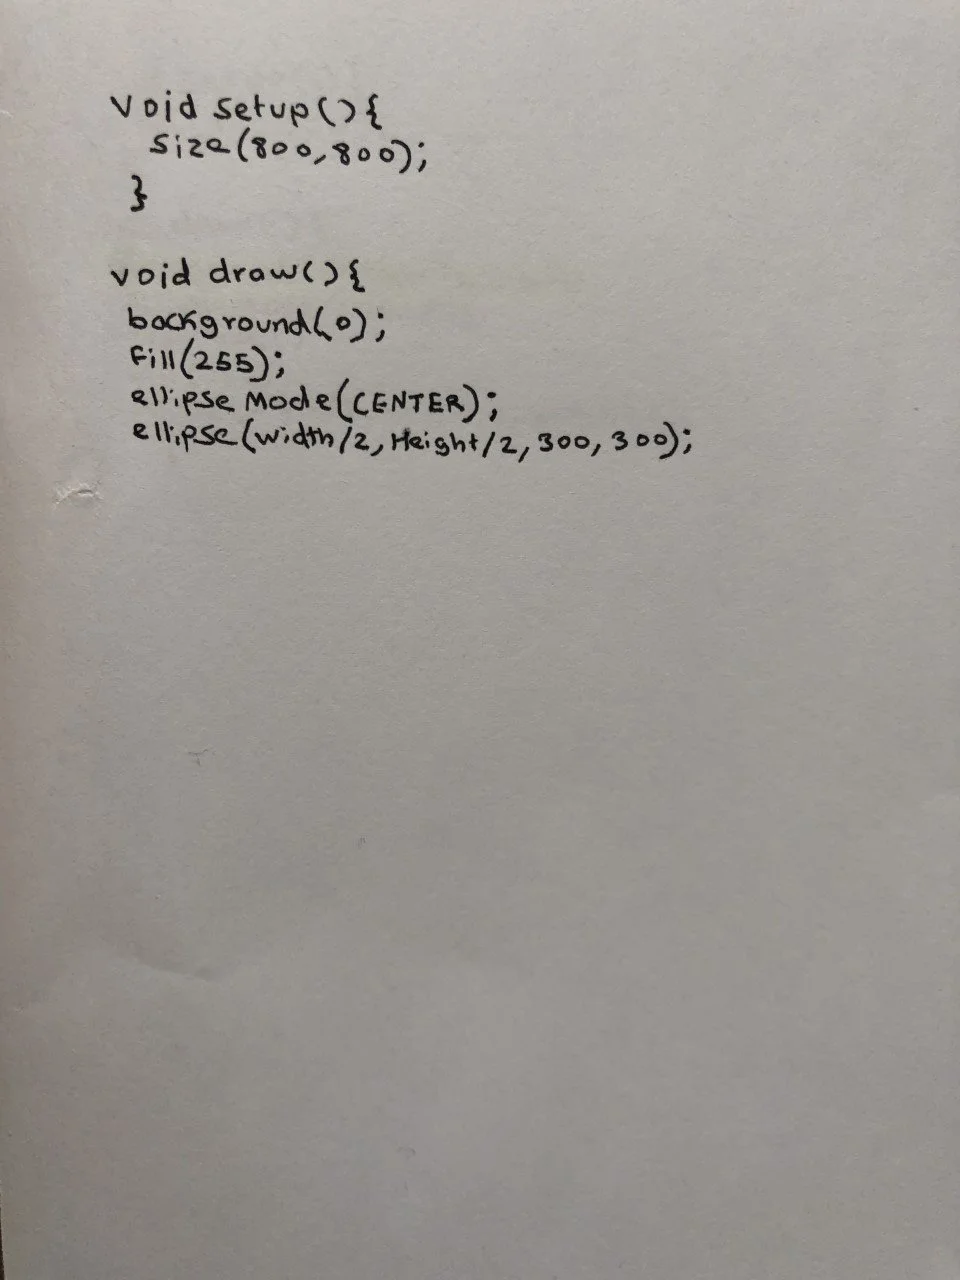 void setup(){
size(800,800);
}
void draw(){
background(0);
fill(255);
ellipse Mode(CENTER);
ellipse(width/2, Height/2, 300, 300);